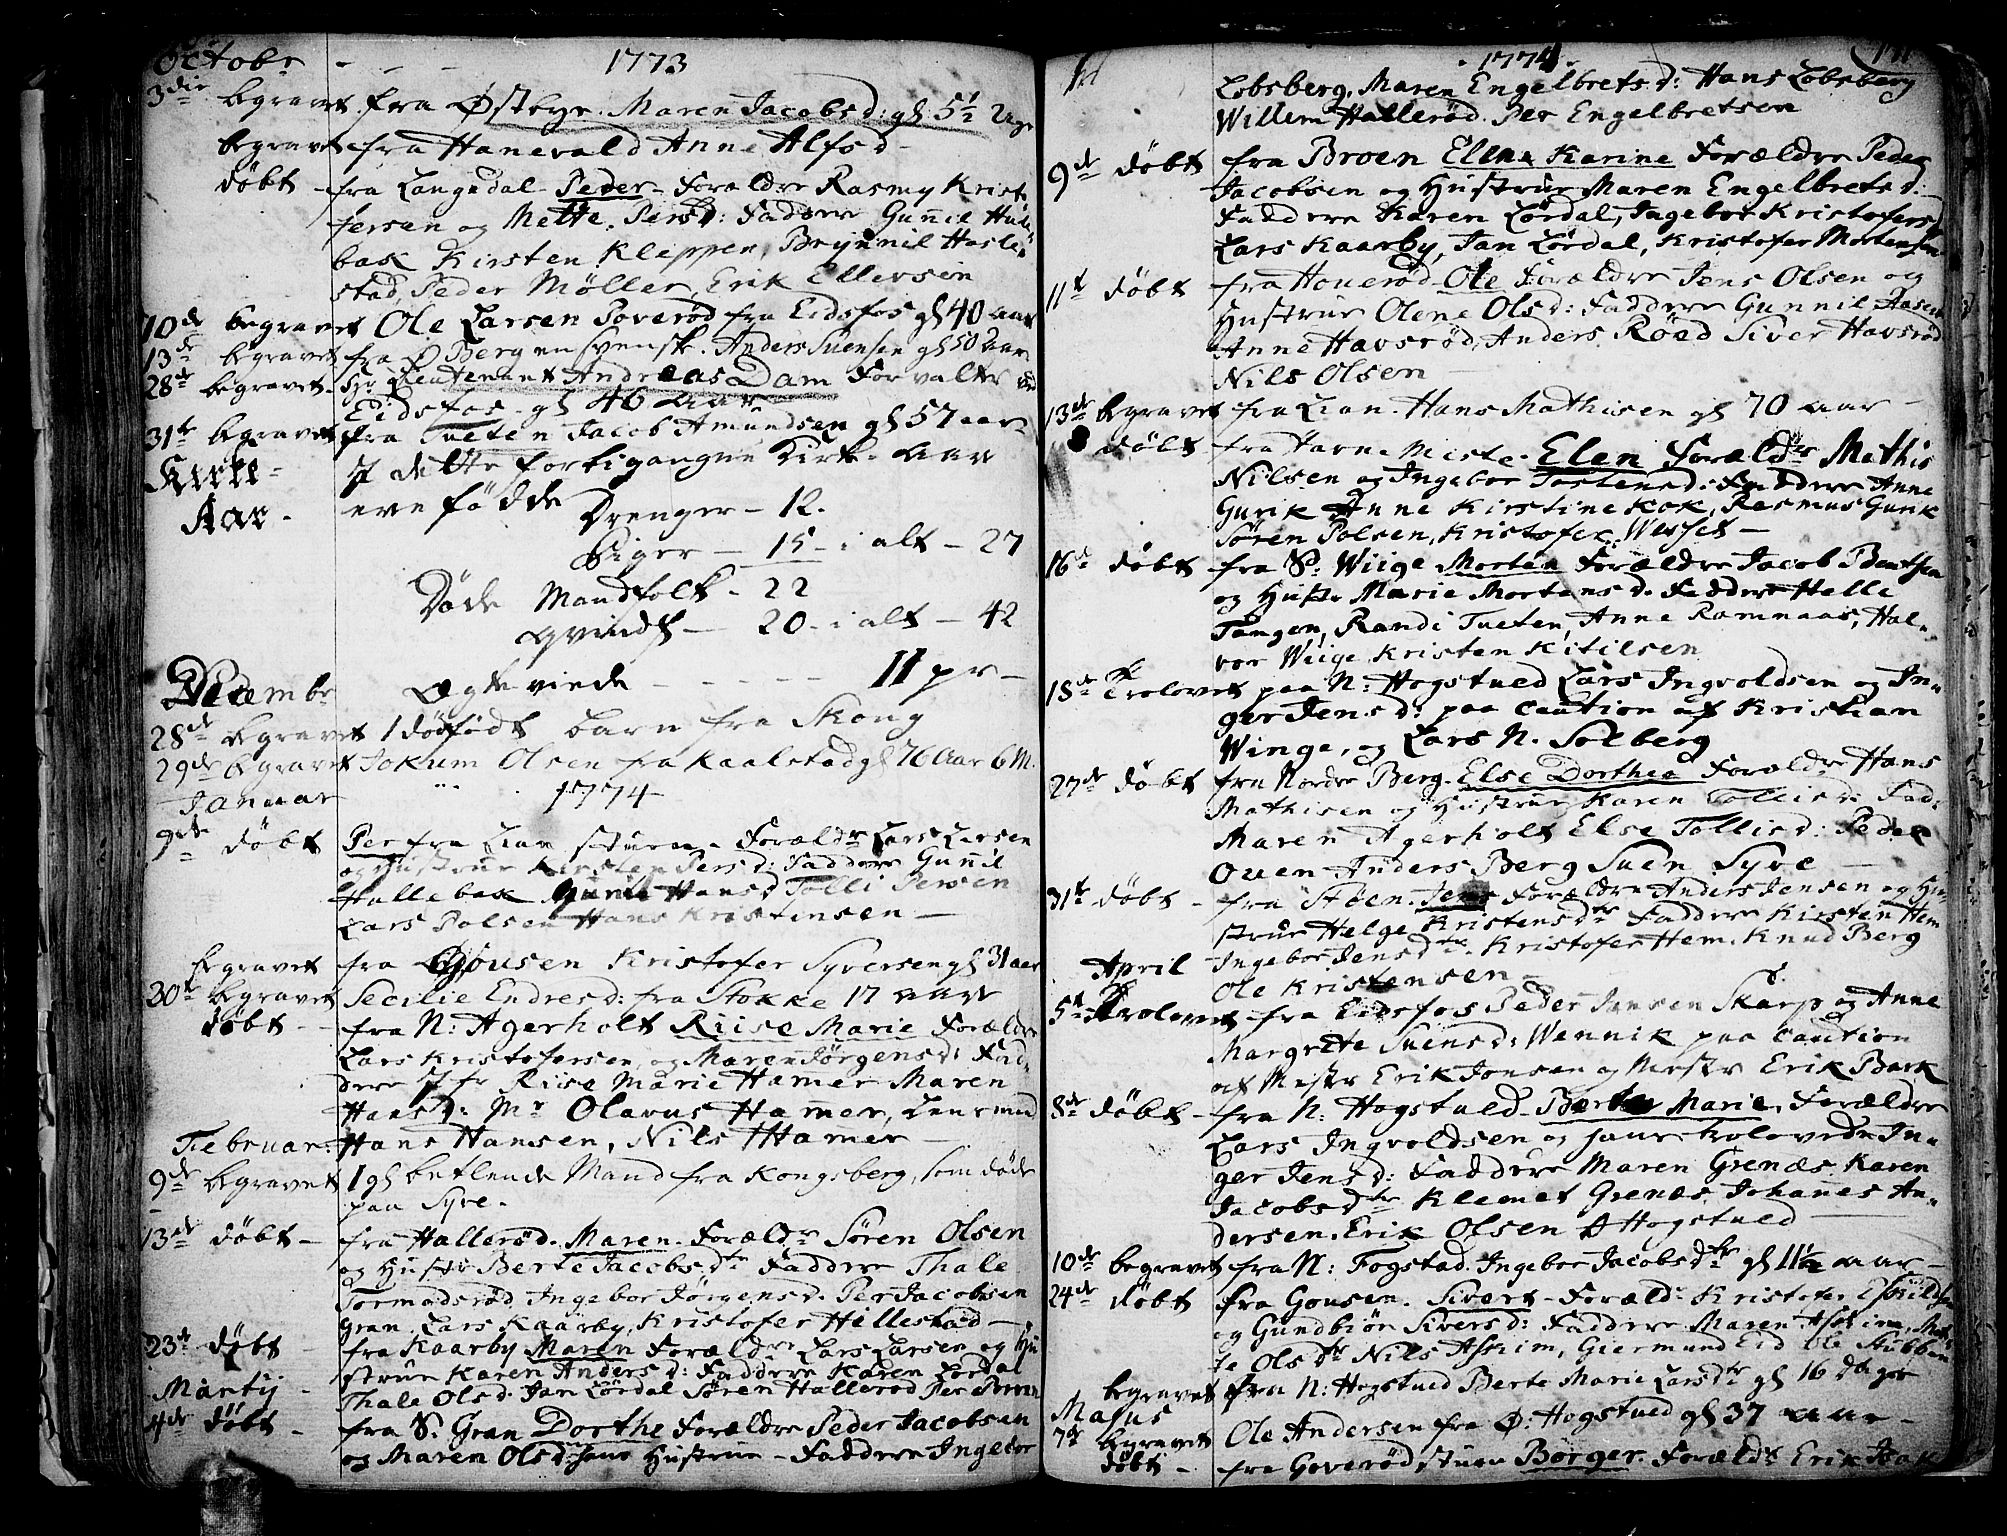 Octobr - - - 1773
3die begravet fra Østbye Maren Jacobsd: gl 5 1/2 Uge
begravet fra Hanevald Anne Alfsd -
døbt - fra Langedal - Peder - Forældre Rasmus Krist
fersen og Mette Persd: Faddere Gunnil
bak Kirsten Kleppen, Brynnil Hasle
stad, Peder Møller, Erik Ellevsen
10de begravet Ole Larsen Søverød fra Eidsfos gl 40 aar
13de begravet fra Ø Berg en svensk. Anders Suensen gl 50 aar
28de begravet Sr. Lieutenant Andreas Dam Forvalter ved
Eidsfos - gl 46 aar
31te begravet fra Tueten Jacob Amundsen gl 57 aar
Kirke- I dette forbigangne Kirke-Aar
Aar - ere fødde Drenger - 12.
Piger - 15 - i alt - 27
Døde Mandfolk - 22
Qvindf - 20 - i alt - 42
Decembr Ægteviede - - - - - 11 pr -
28de begravet 1 dødfødt barn fra Skong
29de begravet Jokum Olsen fra Kaalstad gl 76 Aar 6 M.
Januar 1774 -
9de døbt Per fra Lian stuen. Forældre Lars Larsen
og Hustrue Kirsten Persd: Faddere Gunnil
Hallebak Hansd Tolli Persen
Lars Polsen Hans Kristensen -
Begravet fra Gousen Kristofer Syversen gl 31 aar
30te begravet Secilie Endresd: fra Stokke 17 aar
døbt - - fra N: Agerholt Riise Marie Forældre
Lars Kristofersen og Maren Jørgensd: Fad-
dere Jfr Riise Marie Hamer Maren
Hansd: Mr Olavus Hamer,
Februar: Hans Hansen, Nils Hamer -
9de begravet 1 gl betlende Mand fra Kongsberg, som døde
paa Syre.
13de døbt - fra Hallerød. Maren. Foræld: Søren Olsen
og Hustr Berte Jacobsdtr Faddere Thale
Tormodsrød, Ingebor Jørgensd. Per Jacobsen
Gran, Lars Kaarby, Kristofer Hillestad -
23de døbt - fra Kaarby Maren Forældre Lars Larsen og Hu
strue Karen Andersd: Faddere Karen Lørdal
Martij - Thale Olsd. Jan Lørdal Søren Hallerød Per
4de døbt - fra S. Gran Dorthe Forældre Peder Jacobsen
og Maren Olsd: hans Hustrue - Faddere Ingebor
1774
Lobsberg, Maren Engelbretsd: Hans Lobsberg
Willem Hallerød. Per Engelbretsen
9de døbt fra Broen Ellen Karine Forældre Peder
Jacobsen og Hustrue Maren Engelbretsd:
Faddere Karen Lørdal, Ingebor Kristofersd
Lars Kaarby, Jan Lørdal, Kristofer Mortensen
11te døbt fra Houerød Ole Forældre Jens Olsen og
Hustrue Olene Olsd: Faddere Gunnil
Anne Havsrød, Anders Røed Siver Havsrød
Nils Olsen -
13de begravet fra Lian - Hans Mathisen gl 70 aar -
døbt fra Elen Foræld: Mathis
Nilsen og Ingebor Tostensd: Faddere Anne
Gurik Anne Kirstine Kok, Rasmus Gurik
Søren Polsen, Kristofer Wessel -
16de døbt fra S: Wiige Morten Forældre Jacob Bentsen
og Hustr Marie Mortensd. Faddere Helle
Tangen, Randi Tueten, Anne Ramnaas, Hal-
vor Wiige Kristen Kitilsen
18de Trolovet paa N: Hogstued Lars Ingvoldsen og In-
ger Jensd: paa Caution af Kristian
Winge, og Lars N. Solberg
27de døbt fra Nordre Berg. Else Dorthea Forældre Hans
Mathisen og Hustrue Karen Tollisd: Fad:
Maren Agerholt Else Tollisd: Peder
Ouen Anders Berg Suen Syre -
31te døbt - fra Støen. Jens Forældre Anders Jensen og Hu-
strue Helge Kristensdtr Faddere Kirsten Hem
Ingebor Jensdtr. Kristofer Hem. Knud Berg
April Ole Kristensen -
5te Trolovet fra Eidsfos Peder Jansen Skarp og Anne
Margrete Suensd: Wennik paa Caution
af Mestr Erik Jonsen og Mestr Erik Bark
8de døbt - fra N: Hogstuld - Berte Marie. Forældre
Lars Ingvoldsen og hans trolovede In-
ger Jensd: Faddere Maren Grenæs Karen
Jacobsdtr Klemet Grenæs, Johanes An-
dersen. Erik Olsen Ø Hogstued
10de begravet fra N: Fogstad. Ingebor Jacobsdtr gl 11 1/2 aar -
24de døbt fra Gousen. Sivert - Foræld: Kristofer Eskildsen
og Gundbiør Siversd: Faddere Maren Askim,
te Olsdtr Nils Askim, Giermund Eid Ole Stubben
begravet fra N: Hogstued Berte Marie Larsdtr gl 16 dage
Majus
7de begravet Ole Andersen fra Ø: Hogstued gl 37 aar -
døbt - fra Goverød stuen Børger. Foræld: Erik